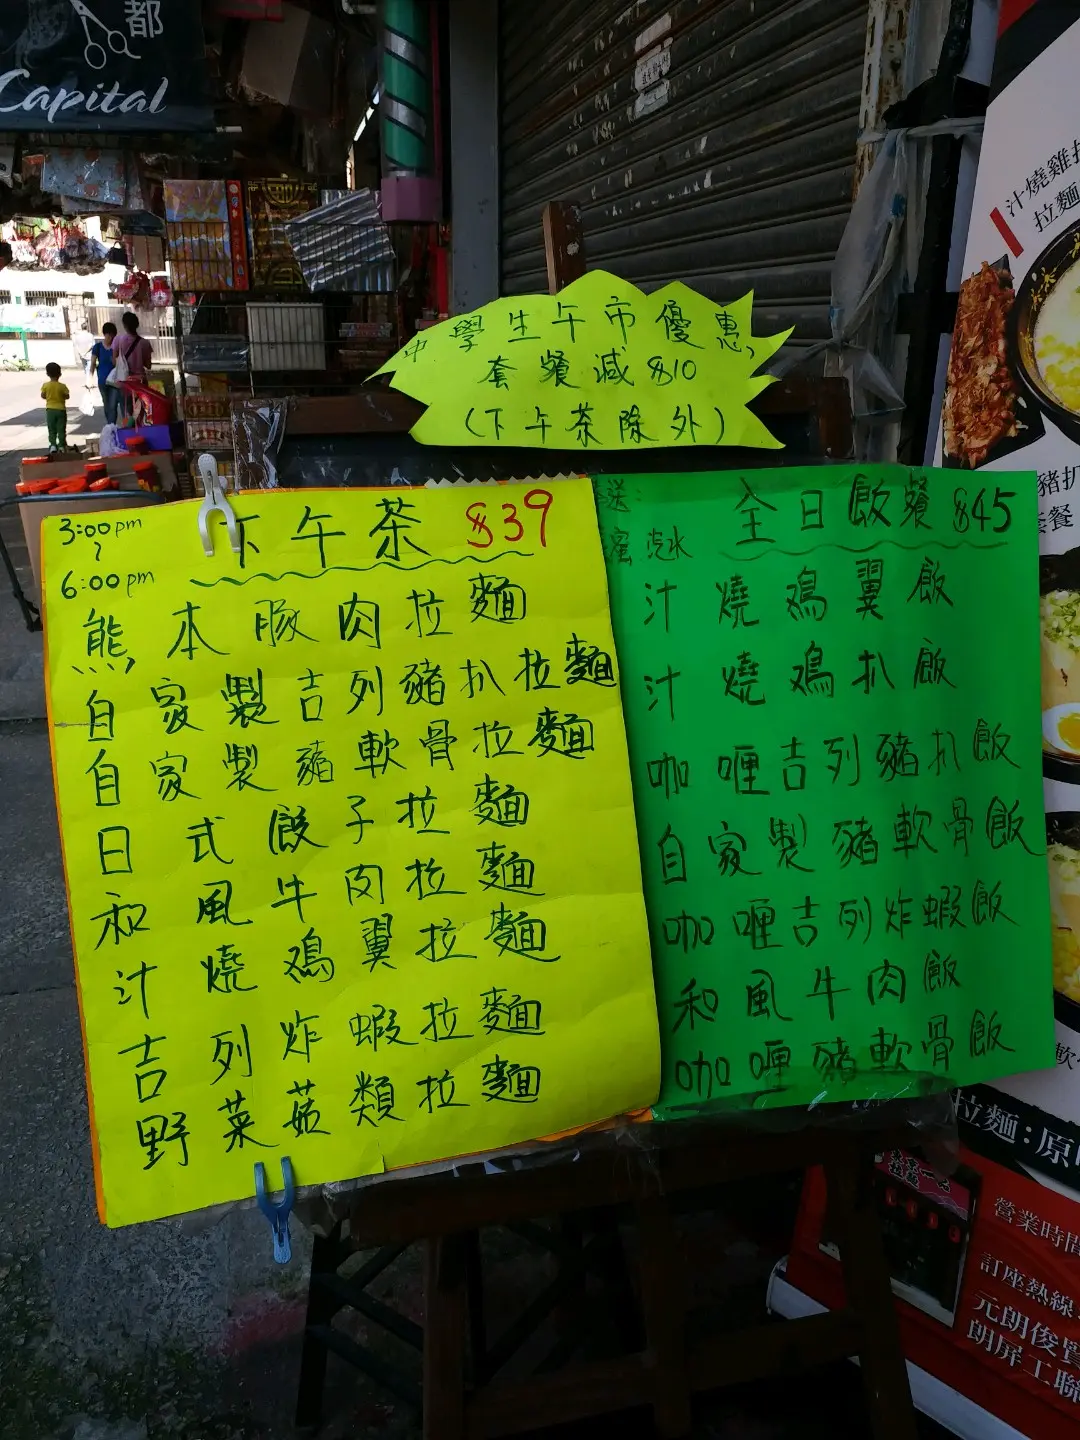 都
Capital
中學生午市優惠,
套餐減$10
(下午茶除外)
3:00pm
~
6:00pm
下午茶 $39
熊本豚肉拉麵
自家製吉列豬扒拉麵
自家製豬軟骨拉麵
日式餃子拉麵
和風牛肉拉麵
汁燒鷄翼拉麵
吉列炸蝦拉麵
野菜菇類拉麵
送:
蜜 汽水
全日飯餐 $45
汁燒鷄翼飯
汁燒鷄扒飯
咖喱吉列豬扒飯
自家製豬軟骨飯
咖喱吉列炸蝦飯
和風牛肉飯
咖喱豬軟骨飯
汁燒雞扒
拉麵
豬扒
套餐
拉麵:原
營業時間
訂座熱線
元朗俊賢
朗屏工聯